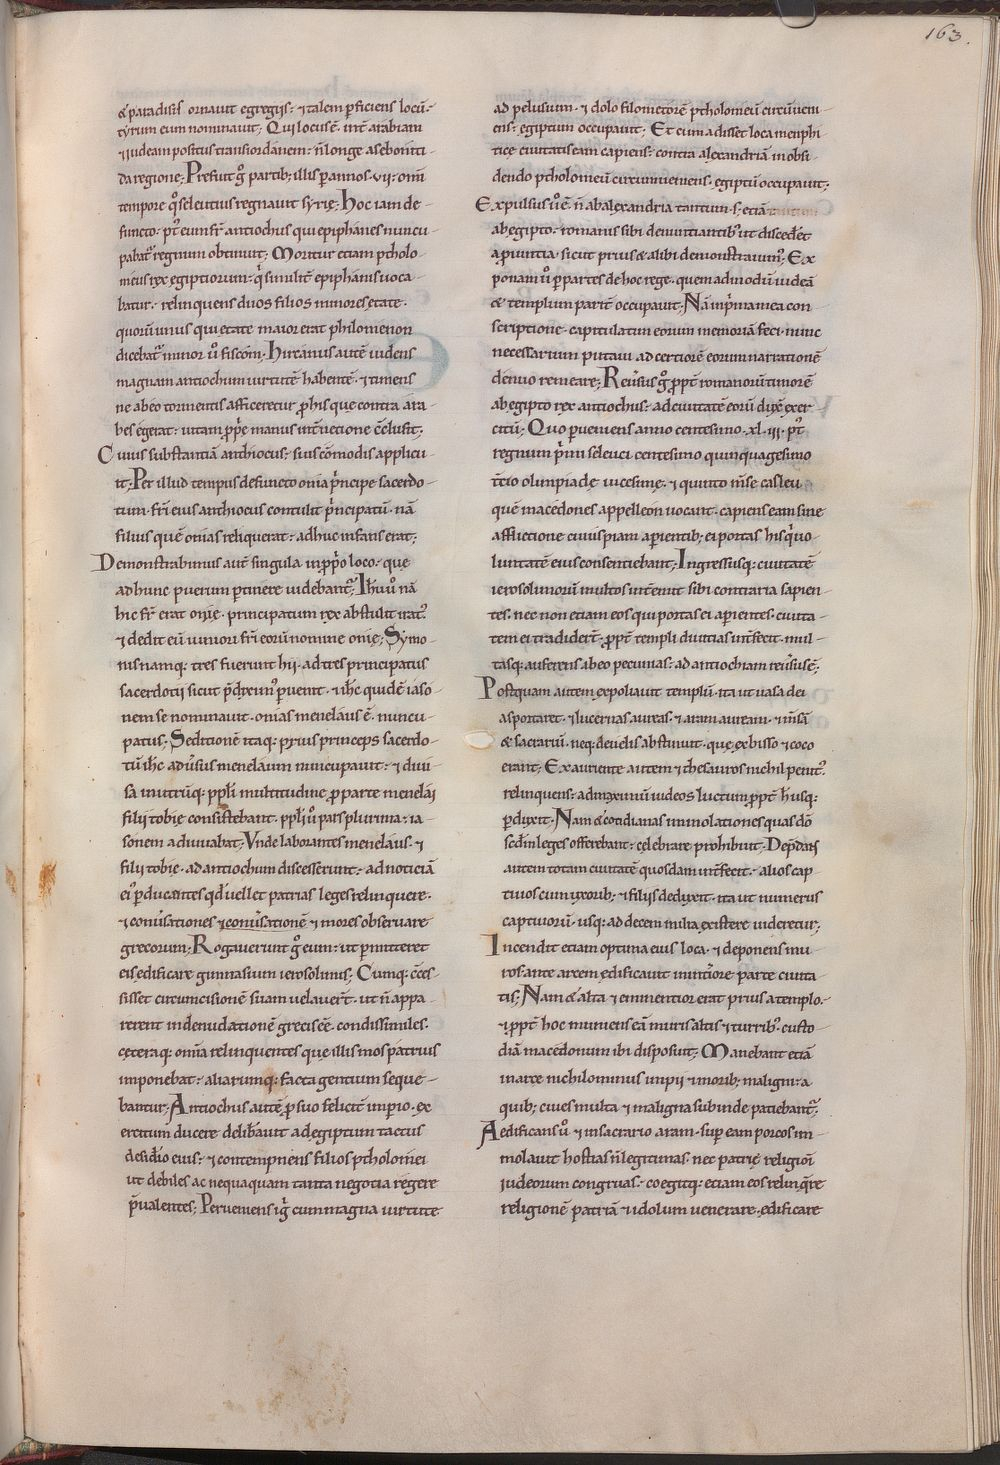 163.
& paradisis ornauit egregiis· ⁊ talem ꝑficiens locū·
tyrum eum nominauit; Qui locus ē int̄ arabiam
⁊ iudeam positus trans iordanem· ñ longe a seboniti-
da regione; Prefuit g̊ partib; illis ꝑ annos ·vii· om̄i
tempore q̊ seleucius regnauit syrię; hoc iam de-
functo· pt̄ eum fr̄ antiochus qui epiphanes nuncu-
pabat᷑ regnum obtinuit; Moritur etiam ptholo-
meus rex egiptiorum· q̇ similit̄ epiphanis uoca-
batur· relinquens duos filios minores etate·
quorū unus qui etate maior erat philomenon
dicebat᷑ minor ů fiscon; hircanus autē uidens
magnam antiochum uirtutē habentē· ⁊ timens
ne ab eo tormentis afficeretur ꝓ his que contra ara-
bes egerat· uitam ꝓp̄e manus int̄uectione c̄clusit;
Cuius substantiā anthiocus· suis cōmodis applicu-
it; Per illud tempus defuncto onia p̍ncipe sacerdo-
tum· fr̄i eius anthiocus contulit p̍ncipatū· nā
filius quē onias reliquerat· adhuc infans erat;
Demonstrabimus aut̄ singula in ꝓp̍o loco· que
ad hunc puerum ꝑtinere uidebant᷑; Ih̄u ů nā
hic fr̄ erat onię· principatum rex abstulit irat᷒·
⁊ dedit eū iuniori fr̄i eorū nomine onię; Symo-
nis namq: tres fuerunt hii· ad tres principatus
sacerdotii sicut p̄diximꝰ ꝑuenit· ⁊ ih̄c quidē iaso-
nem se nominauit· onias menelaus ē nuncu-
patus; Seditionē itaq: prius princeps sacerdo-
tū ih̄c adu̍sus menelaum nuncupauit· ⁊ diui-
sa in utrūq: pp̄li multitudine ꝓ parte menelai
filii tobię consistebant· pp̄li ů pars plurima· ia-
sonem adiuuabat; Vnde laborantes menelaus· ⁊
filii tobię· ad antiochum discesserunt· ad noticiā
ei᷒ ꝑducentes qd̍ uellet patrias leges relinquere·
⁊ conu̍sationes ⁊ conu̍sationē ⁊ mores obseruare
grecorum; Rogauerunt g̊ eum· ut ꝑmitteret
eis edificare gimnasium ierosolimis; Cumq: c̄ces-
sisset circumcisionē suam uelauer̄t· ut ñ appa-
rerent in denudationē grecis ē̄ condissimiles·
ceteraq: om̄ia relinquentes que illis mos patrius
imponebat· aliarumq: facta gentium seque-
bantur; Antiochus autē ꝓ suo felicit̄ imꝑio· ex-
ercitum ducere delib̄auit ad egiptum tactus
desid̍io eius· ⁊ contempnens filios ptholomei
ut debiles ac nequaquam tanta negotia regere
p̄ualentes; Perueniens ig̍ cum magna uirtute
ad pelusium· ⁊ dolo filometorē ptholomeū circūueni-
ens· egiptum occupauit; Et cum adisset loca menphi-
tice ciuitatis eam capiens· contra alexandriā in obsi-
dendo ptholomeū circumueniens· egiptū occupauit;
Expulsus ů ē ñ ab alexandria tantum· s; etiā
ab egipto· romanis sibi denuntiantib᷒ ut disced̍et
a ꝓuintia· sicut prius & alibi demonstrauim᷒; Ex-
ponam ů ꝑ partes de hoc rege· quemadmodū iudeā
& templum part̄ occupauit; Nā in p̍ma mea con-
scriptione· capitulatim eorum memoriā feci· nunc
necessarium putaui ad certiorē eorum narrationē
denuo remeare; Reu̍sus g̊ ꝓpt̄ romanorū timorē
ab egipto rex antiochus· ad ciuitatē eorū dux̄ exer-
citū; Quo ꝑueniens anno centesimo ·xl·iii· pt̄
regnum p̍mi seleuci centesimo quinquagesimo
t̄cio olimpiadę uicesime· ⁊ quinto m̄se casleu
quē macedones appelleon uocant· capiens eam sine
afflictione cuiuspiam aꝑientib; ei portas his q̍ uo-
luntatē eius consentiebant; Ingressusq: ciuitatē
ierosolimorū multos int̄emit sibi contraria sapien-
tes· nec non etiam eos qui portas ei aꝑientes· ciuita-
tem ei tradider̄t· ꝓpt̄ templi diuitias int̄fecit· mul-
tasq: auferens ab eo pecunias· ad antiochiam reu̍sus ē;
Postquam autem expoliauit templū· ita ut uasa dei
asportaret· ⁊ lucernas aureas· ⁊ aram auream· ⁊ m̄sā
& sacrariū· neq: de uelis abstinuit· que ex bisso ⁊ coco
erant; Exauriente autem ⁊ thesauros nichil penit᷒·
relinquens· ad maximū iudeos luctum ꝓpt̄ h̍ usq:
ꝑduxit· Nam & cotidianas immolationes quas dō
scd̄m leges offerebant· celebrare prohibuit· Dep̄dans
autem totam ciuitatē quosdam int̄fecit· alios cap-
tiuos cum uxorib; ⁊ filiis deduxit· ita ut numerus
captiuorū· usq: ad decem milia existere uideretur;
Incendit etiam optima eius loca· ⁊ deponens mu-
ros· ante arcem edificauit in int̍iore parte ciuita-
tis; Nam & alta ⁊ eminentior erat prius a templo·
⁊ ꝓpt̄ hoc muniens eā muris altis ⁊ turrib᷒· custo-
diā macedonum ibi disposuit; Manebant etiā
in arce nichilominus impii ⁊ morib; maligni· a
quib; ciues multa ⁊ maligna subinde patiebant᷑;
Aedificans ů ⁊ in sacrario aram· suꝑ eam porcos im-
molauit hostias ñ legitimas· nec patrię religioī
iudeorum congruas· coegitq: etiam eos relinq̍re
religionē patriā ⁊ idolum uenerare· edificare